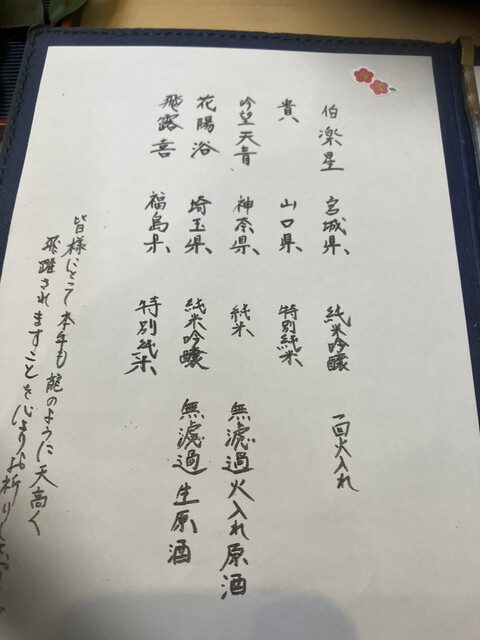 伯楽星 宮城県 純米吟醸 一回火入れ
貴 山口県 特別純米
吟望天青 神奈県 純米 無濾過火入れ原酒
花陽浴 埼玉県 純米吟醸 無濾過生原酒
飛露喜 福島県 特別純米
皆様にとって本年も龍のように天高く
飛躍されますことを心よりお祈りして